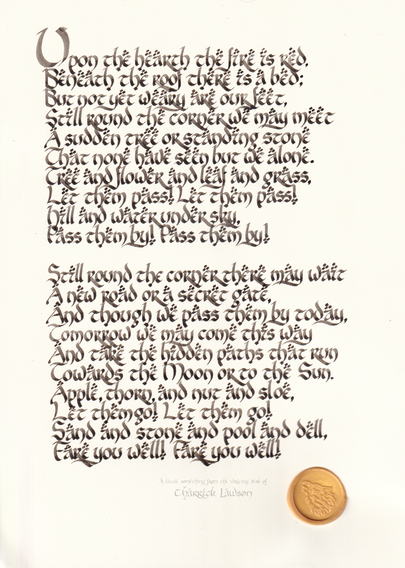 Upon the hearth the fire is red,
Beneath the roof there is a bed;
But not yet weary are our feet,
Still round the corner we may meet
A sudden tree or standing stone
That none have seen but we alone.
Tree and flower and leaf and grass,
Let them pass! Let them pass!
Hill and water under sky,
Pass them by! Pass them by!
Still round the corner there may wait
A new road or a secret gate,
And though we pass them by today,
Tomorrow we may come this way
And take the hidden paths that run
Towards the Moon or to the Sun.
Apple, thorn, and nut and sloe,
Let them go! Let them go!
Sand and stone and pool and dell,
Fare you well! Fare you well!
A book something from the singing ink of
Tharrick Lawson